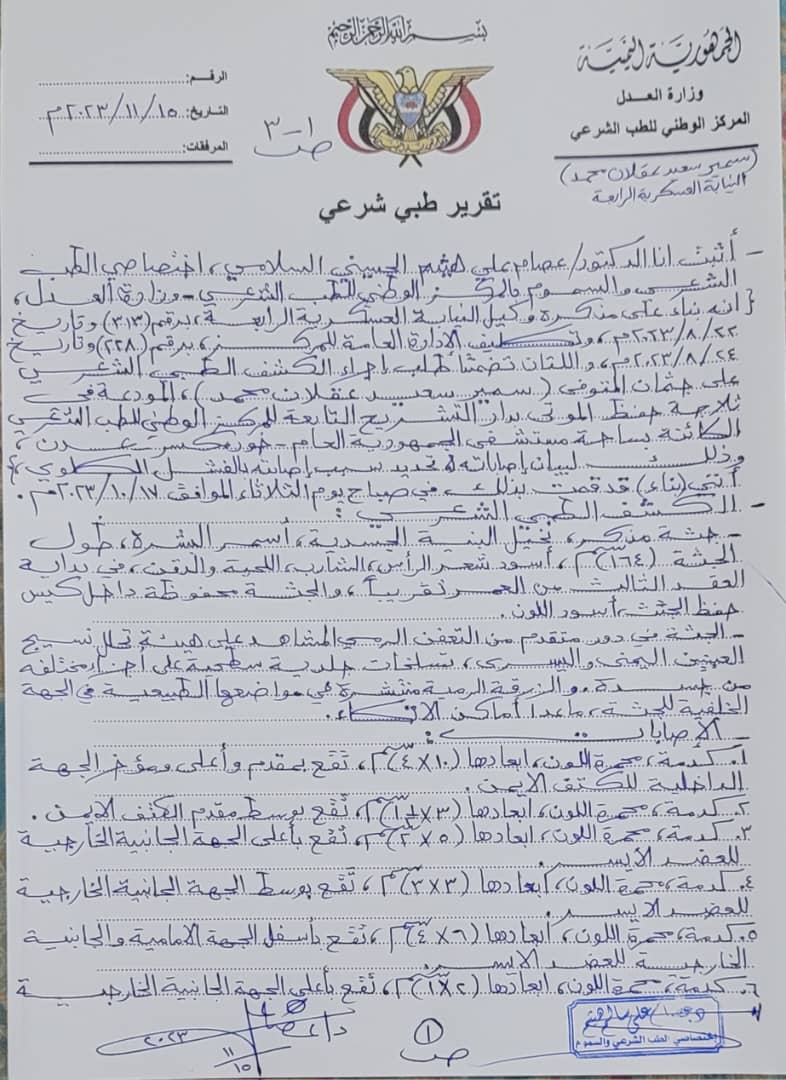 بسم الله الرحمن الرحيم
الجمهورية اليمنية
وزارة العدل
المركز الوطني للطب الشرعي
(سمير سعيد عقلان محمد)
النيابة العسكرية الرابعة
الرقم:
التاريخ: ٢٠٢٣/١١/١٥م
المرفقات:
ص ١-٣
تقرير طبي شرعي
- أثبت انا الدكتور/ عصام علي هيثم الحسيني السلامي، اختصاصي الطب
الشرعي والسموم بالمركز الوطني للطب الشرعي - وزارة العدل،
{انه بناء على مذكرة وكيل النيابة العسكرية الرابعة، برقم (٣١٣) وتاريخ
٢٠٢٣/٨/٢٢م، وتكليف الادارة العامة للمركز، برقم (٢٢٨) وتاريخ
٢٠٢٣/٨/٢٤م، واللتان تضمنتا طلب إجراء الكشف الطبي الشرعي
على جثمان المتوفى (سمير سعيد عقلان محمد)، المودعة في
ثلاجة حفظ الموتى بدار التشريح التابعة للمركز الوطني للطب الشرعي
الكائنة بساحة مستشفى الجمهورية العام - خورمكسر عدن،
وذلك لبيان إصاباته و تحديد سبب إصابته بالفشل الكلوي}
أنني (بناء) قد قمت بذلك في صباح يوم الثلاثاء الموافق ٢٠٢٣/١٠/١٧م.
- الكشف الطبي الشرعي:
- جثة مذكر، نحيل البنية الجسدية، أسمر البشرة، طول
الجثة (١٦٤ سم)، أسود شعر الرأس، الشارب، اللحية والذقن، في بداية
العقد الثالث من العمر تقريباً، والجثة محفوظة داخل كيس
حفظ الجثث، أسود اللون.
- الجثة في دور متقدم من التعفن الرمي المشاهد على هيئة تحلل نسيج
العينين اليمنى واليسرى، تسلخات جلدية سطحية على اجزاء مختلفة
من جسده. والزرقة الرمية منتشرة في مواضعها الطبيعية في الجهة
الخلفية للجثة، ماعدا أماكن الاتكاء.
- الاصابات:
١. كدمة، محمرة اللون، ابعادها (١٠×٤ سم)، تقع بمقدم وأعلى ومؤخر الجهة
الداخلية للكتف الايمن.
٢. كدمة، محمرة اللون، ابعادها (٣× سم)، تقع بوسط مقدم الكتف الايمن.
٣. كدمة، محمرة اللون، ابعادها (٥×٢ سم)، تقع بأعلى الجهة الجانبية الخارجية
للعضد الايسر.
٤. كدمة، محمرة اللون، ابعادها (٣×٣ سم)، تقع بوسط الجهة الجانبية الخارجية
للعضد الايسر.
٥. كدمة، محمرة اللون، ابعادها (٦×٤ سم)، تقع بأسفل الجهة الامامية والجانبية
الخارجية للعضد الايسر.
٦. كدمة، محمرة اللون، ابعادها (٢×١ سم)، تقع بأعلى الجهة الجانبية الخارجية
اختصاصي الطب الشرعي والسموم
ص ١
٢٠٢٣
١١
١٥